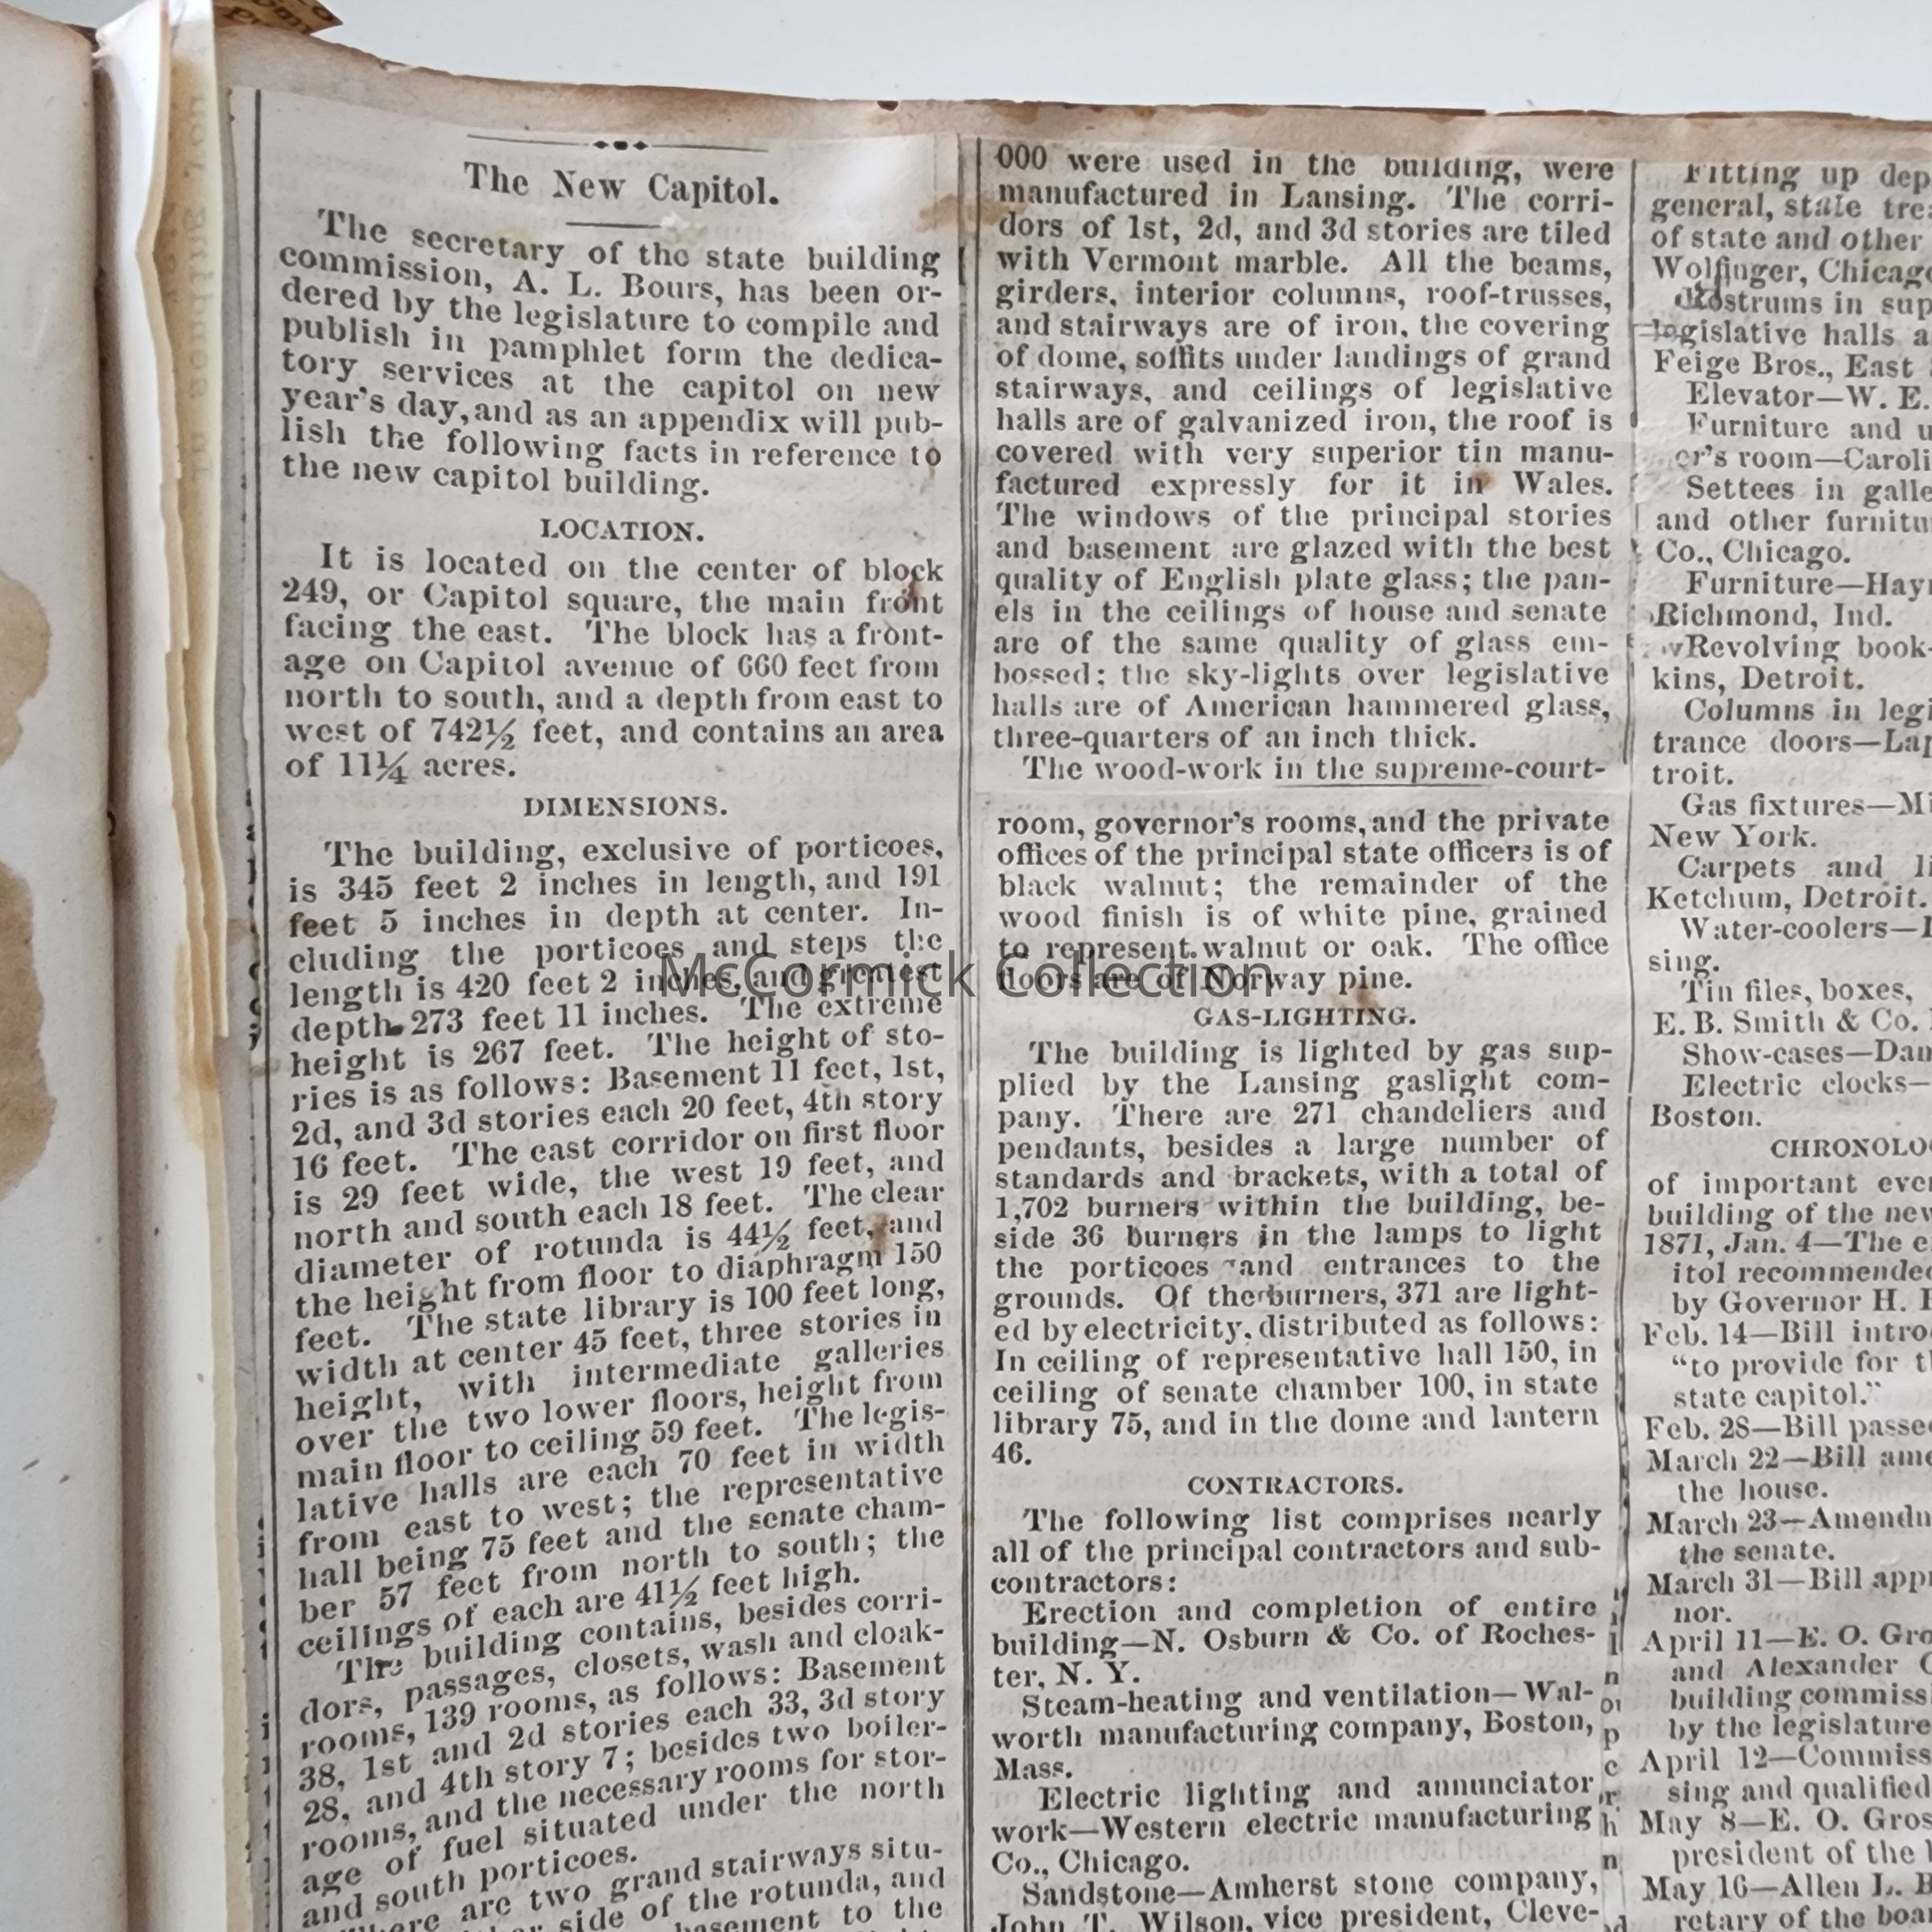 The New Capitol.
The secretary of the state building
commission, A. L. Bours, has been or-
dered by the legislature to compile and
publish in pamphlet form the dedica-
tory services at the capitol on new
year's day, and as an appendix will pub-
lish the following facts in reference to
the new capitol building.
LOCATION.
It is located on the center of block
249, or Capitol square, the main front
facing the east. The block has a front-
age on Capitol avenue of 660 feet from
north to south, and a depth from east to
west of 742½ feet, and contains an area
of 11¼ acres.
DIMENSIONS.
The building, exclusive of porticoes,
is 345 feet 2 inches in length, and 191
feet 5 inches in depth at center. In-
cluding the porticoes and steps the
length is 420 feet 2 inches, and greatest
depth 273 feet 11 inches. The extreme
height is 267 feet. The height of sto-
ries is as follows: Basement 11 feet, 1st,
2d, and 3d stories each 20 feet, 4th story
16 feet. The east corridor on first floor
is 29 feet wide, the west 19 feet, and
north and south each 18 feet. The clear
diameter of rotunda is 44½ feet, and
the height from floor to diaphragm 150
feet. The state library is 100 feet long,
width at center 45 feet, three stories in
height, with intermediate galleries
over the two lower floors, height from
main floor to ceiling 59 feet. The legis-
lative halls are each 70 feet in width
from east to west; the representative
hall being 75 feet and the senate cham-
ber 57 feet from north to south; the
ceilings of each are 41½ feet high.
The building contains, besides corri-
dors, passages, closets, wash and cloak-
rooms, 139 rooms, as follows: Basement
38, 1st and 2d stories each 33, 3d story
28, and 4th story 7; besides two boiler-
rooms, and the necessary rooms for stor-
age of fuel situated under the north
and south porticoes.
are two grand stairways situ-
side of the rotunda, and
basement to the
000 were used in the building, were
manufactured in Lansing. The corri-
dors of 1st, 2d, and 3d stories are tiled
with Vermont marble. All the beams,
girders, interior columns, roof-trusses,
and stairways are of iron, the covering
of dome, soffits under landings of grand
stairways, and ceilings of legislative
halls are of galvanized iron, the roof is
covered with very superior tin manu-
factured expressly for it in Wales.
The windows of the principal stories
and basement are glazed with the best
quality of English plate glass; the pan-
els in the ceilings of house and senate
are of the same quality of glass em-
bossed; the sky-lights over legislative
halls are of American hammered glass,
three-quarters of an inch thick.
The wood-work in the supreme-court-
room, governor's rooms, and the private
offices of the principal state officers is of
black walnut; the remainder of the
wood finish is of white pine, grained
to represent walnut or oak. The office
doors are of Norway pine.
McCormick Collection
GAS-LIGHTING.
The building is lighted by gas sup-
plied by the Lansing gaslight com-
pany. There are 271 chandeliers and
pendants, besides a large number of
standards and brackets, with a total of
1,702 burners within the building, be-
side 36 burners in the lamps to light
the porticoes and entrances to the
grounds. Of the burners, 371 are light-
ed by electricity, distributed as follows:
In ceiling of representative hall 150, in
ceiling of senate chamber 100, in state
library 75, and in the dome and lantern
46.
CONTRACTORS.
The following list comprises nearly
all of the principal contractors and sub-
contractors:
Erection and completion of entire
building—N. Osburn & Co. of Roches-
ter, N. Y.
Steam-heating and ventilation—Wal-
worth manufacturing company, Boston,
Mass.
Electric lighting and annunciator
work—Western electric manufacturing
Co., Chicago.
Sandstone—Amherst stone company,
John T. Wilson, vice president, Cleve-
Fitting up dep
general, state trea
of state and other
Wolfinger, Chicago
Rostrums in sup
legislative halls a
Feige Bros., East
Elevator—W. E.
Furniture and u
er's room—Caroli
Settees in galle
and other furnitu
Co., Chicago.
Furniture—Hayn
Richmond, Ind.
Revolving book-
kins, Detroit.
Columns in legi
trance doors—Lap
troit.
Gas fixtures—Mi
New York.
Carpets and li
Ketchum, Detroit.
Water-coolers—
sing.
Tin files, boxes,
E. B. Smith & Co.
Show-cases—Dan
Electric clocks—
Boston.
CHRONOLO
of important even
building of the new
1871, Jan. 4—The e
itol recommended
by Governor H.
Feb. 14—Bill intro
"to provide for th
state capitol."
Feb. 28—Bill passe
March 22—Bill ame
the house.
March 23—Amendm
the senate.
March 31—Bill app
nor.
April 11—E. O. Gro
and Alexander C
building commissi
by the legislature
April 12—Commiss
sing and qualified
May 8—E. O. Gros
president of the
May 16—Allen L. B
retary of the boa